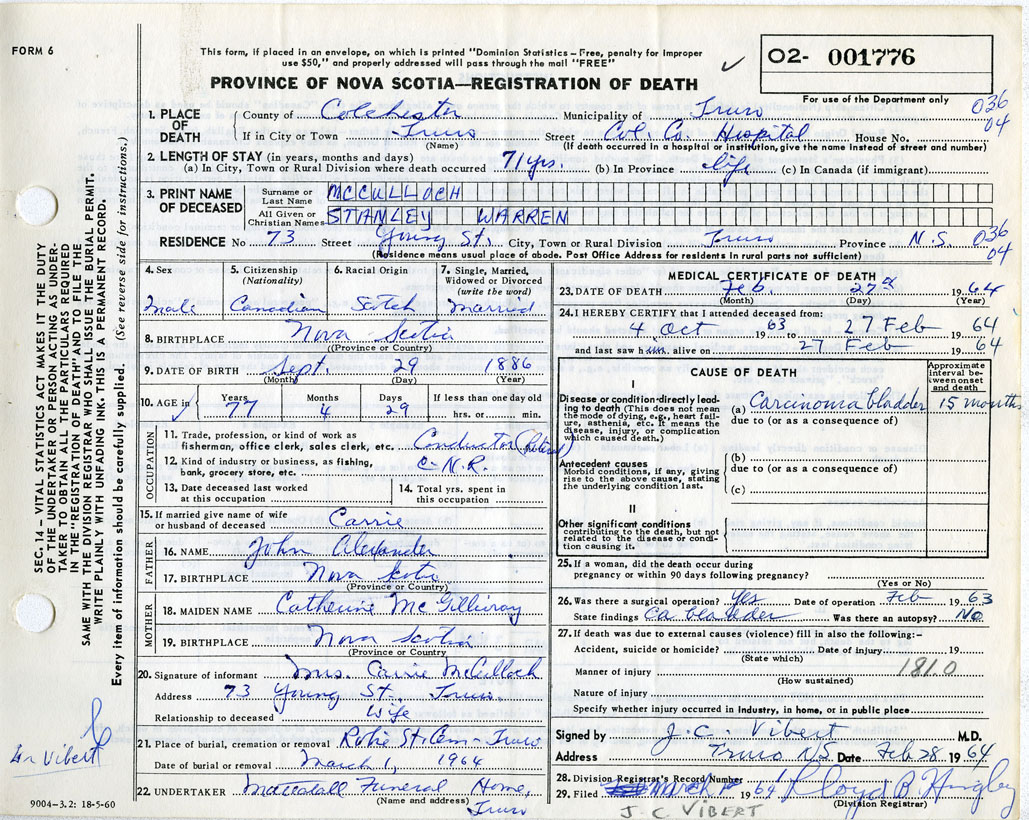 FORM 6
This form, if placed in an envelope, on which is printed "Dominion Statistics – Free, penalty for improper
use $50," and properly addressed will pass through the mail "FREE"
✓
O2- 001776
PROVINCE OF NOVA SCOTIA—REGISTRATION OF DEATH
For use of the Department only
036
04
1. PLACE OF DEATH { County of Colchester Municipality of Truro
If in City or Town Truro Street Col. Co. Hospital House No.
(Name) (If death occurred in a hospital or institution, give the name instead of street and number)
2. LENGTH OF STAY (in years, months and days)
(a) In City, Town or Rural Division where death occurred 71 yrs. (b) In Province life (c) In Canada (if immigrant)
3. PRINT NAME OF DECEASED { Surname or Last Name MCCULLOCH
All Given or Christian Names STANLEY WARREN
RESIDENCE No 73 Street Young St. City, Town or Rural Division Truro Province N.S.
036
04
(Residence means usual place of abode. Post Office Address for residents in rural parts not sufficient)
4. Sex 5. Citizenship (Nationality) 6. Racial Origin 7. Single, Married, Widowed or Divorced (write the word)
Male Canadian Scotch Married
8. BIRTHPLACE Nova Scotia
(Province or Country)
9. DATE OF BIRTH Sept. 29 1886
(Month) (Day) (Year)
10. AGE in Years Months Days If less than one day old
77 4 29 hrs. or min.
OCCUPATION
11. Trade, profession, or kind of work as
fisherman, office clerk, sales clerk, etc. Conductor (Retired)
12. Kind of industry or business, as fishing,
bank, grocery store, etc. C.N.R.
13. Date deceased last worked
at this occupation
14. Total yrs. spent in
this occupation
15. If married give name of wife
or husband of deceased Carrie
FATHER
16. NAME John Alexander
17. BIRTHPLACE Nova Scotia
(Province or Country)
MOTHER
18. MAIDEN NAME Catherine McGillivray
19. BIRTHPLACE Nova Scotia
(Province or Country)
20. Signature of informant Mrs. Carrie McCulloch
Address 73 Young St. Truro
Relationship to deceased Wife
21. Place of burial, cremation or removal Robie St. Cem - Truro
Date of burial or removal March 1, 1964
22. UNDERTAKER Mattatall Funeral Home,
(Name and address) Truro
MEDICAL CERTIFICATE OF DEATH
23. DATE OF DEATH Feb. 27 19 64
(Month) (Day) (Year)
24. I HEREBY CERTIFY that I attended deceased from:
4 Oct 19 63 to 27 Feb 19 64
and last saw h im alive on 27 Feb 19 64
CAUSE OF DEATH
Approximate interval between onset and death
I
Disease or condition directly leading to death (This does not mean the mode of dying, e.g., heart failure, asthenia, etc. It means the disease, injury, or complication which caused death.)
(a) Carcinoma bladder 15 months
due to (or as a consequence of)
Antecedent causes
Morbid conditions, if any, giving rise to the above cause, stating the underlying condition last.
(b)
due to (or as a consequence of)
(c)
II
Other significant conditions
contributing to the death, but not related to the disease or condition causing it.
25. If a woman, did the death occur during
pregnancy or within 90 days following pregnancy?
(Yes or No)
26. Was there a surgical operation? Yes Date of operation Feb 19 63
State findings Ca bladder Was there an autopsy? No
27. If death was due to external causes (violence) fill in also the following:–
Accident, suicide or homicide? Date of injury 19
(State which)
181.0
Manner of injury
(How sustained)
Nature of injury
Specify whether injury occurred in industry, in home, or in public place
Signed by J.C. Vibert M.D.
Address Truro N.S. Date Feb 28 1964
28. Division Registrar's Record Number
29. Filed March 19 64 Lloyd B
(Division Registrar)
J. C VIBERT
SEC. 14 – VITAL STATISTICS ACT MAKES IT THE DUTY
OF THE UNDERTAKER OR PERSON ACTING AS UNDER-
TAKER TO OBTAIN ALL THE PARTICULARS REQUIRED
IN THE "REGISTRATION OF DEATH" AND TO FILE THE
SAME WITH THE DIVISION REGISTRAR WHO SHALL ISSUE THE BURIAL PERMIT.
WRITE PLAINLY WITH UNFADING INK. THIS IS A PERMANENT RECORD.
Every item of information should be carefully supplied. (See reverse side for instructions.)
Dr Vibert
9004-3.2: 18-5-60